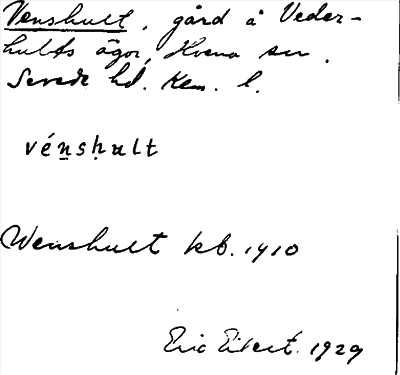 Venshult, gård å Veder-
hults ägor, Hvena sn.
Sevede hd. Kem. l.
vénshult
Wenshult kb. 1910
Eric Eilert. 1929